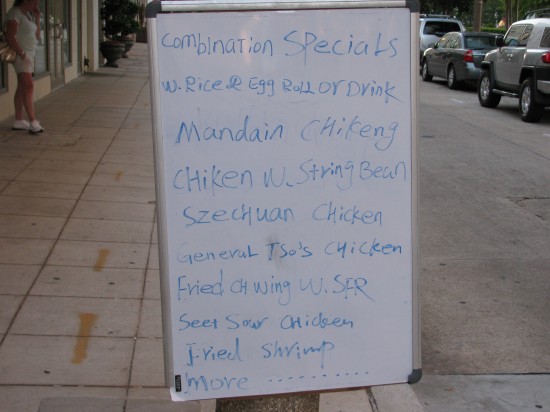 Combination Specials
W. Rice & Egg Roll or Drink
Mandain Chikeng
Chiken W. String Bean
Szechuan Chicken
General Tso's Chicken
Fried CH Wing W. SFR
Seet Sour Chicken
Fried Shrimp
More ..........